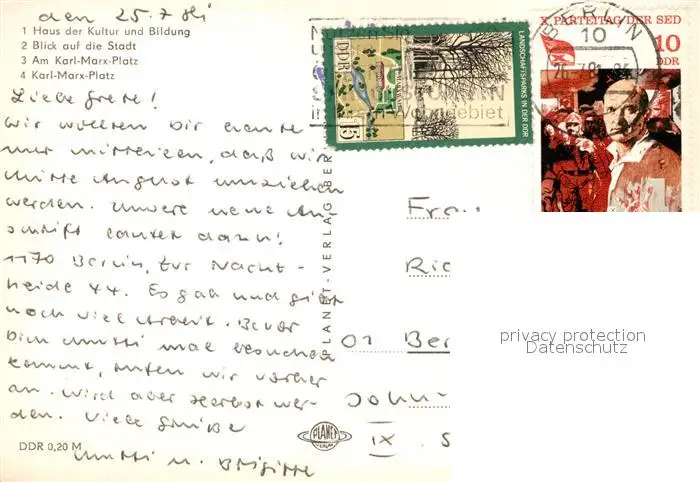 den 25.7.81
1 Haus der Kultur und Bildung
2 Blick auf die Stadt
3 Am Karl-Marx-Platz
4 Karl-Marx-Platz
Liebe Grete!
Wir wollten Dir heute
nur mitteilen, daß wir
Mitte August umziehen
werden. Unsere neue An-
schrift lautet dann:
1170 Berlin, Zur Nacht-
heide 44. Es gab und gibt
noch viel Arbeit. Bevor
Dich Mutti mal besuchen
kommt, rufen wir vorher
an. Wird aber Herbst wer-
den. Viele Grüße
Mutti u. Brigitte
DDR 0,20 M
PLANET-VERLAG BER
PLANET
VERLAG
Nutzen Sie
in Ihrem Wohngebiet
DDR
15
LANDSCHAFTSPARKS IN DER DDR
BERLIN
10
X. PARTEITAG DER SED
10
DDR
Frau
Ric
01 Ber
John-
IX. S
privacy protection
Datenschutz